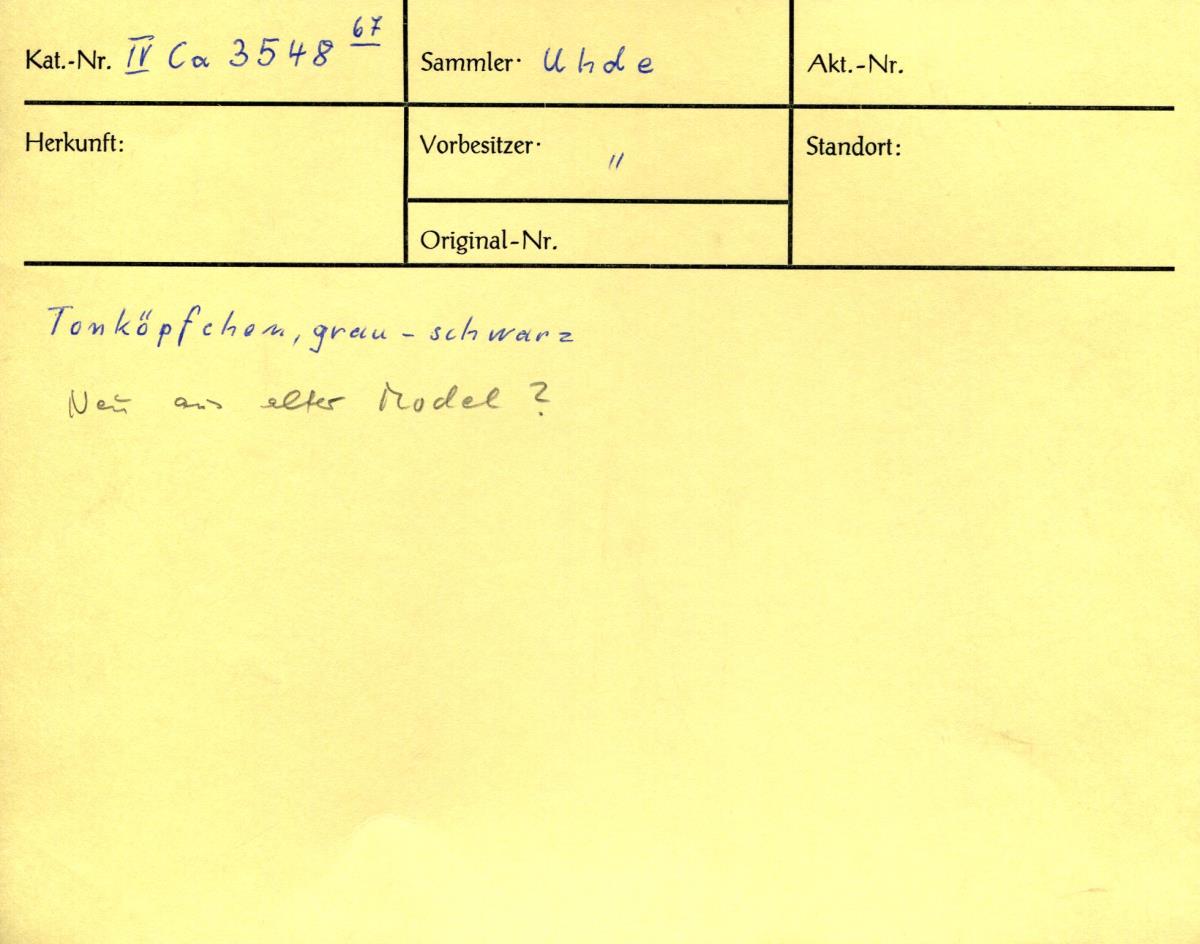 Kat.-Nr. IV Ca 3548 67
Sammler: Uhde
Akt.-Nr.
Herkunft:
Vorbesitzer: "
Standort:
Original-Nr.
Tonköpfchen, grau - schwarz
Neu aus alter Model ?